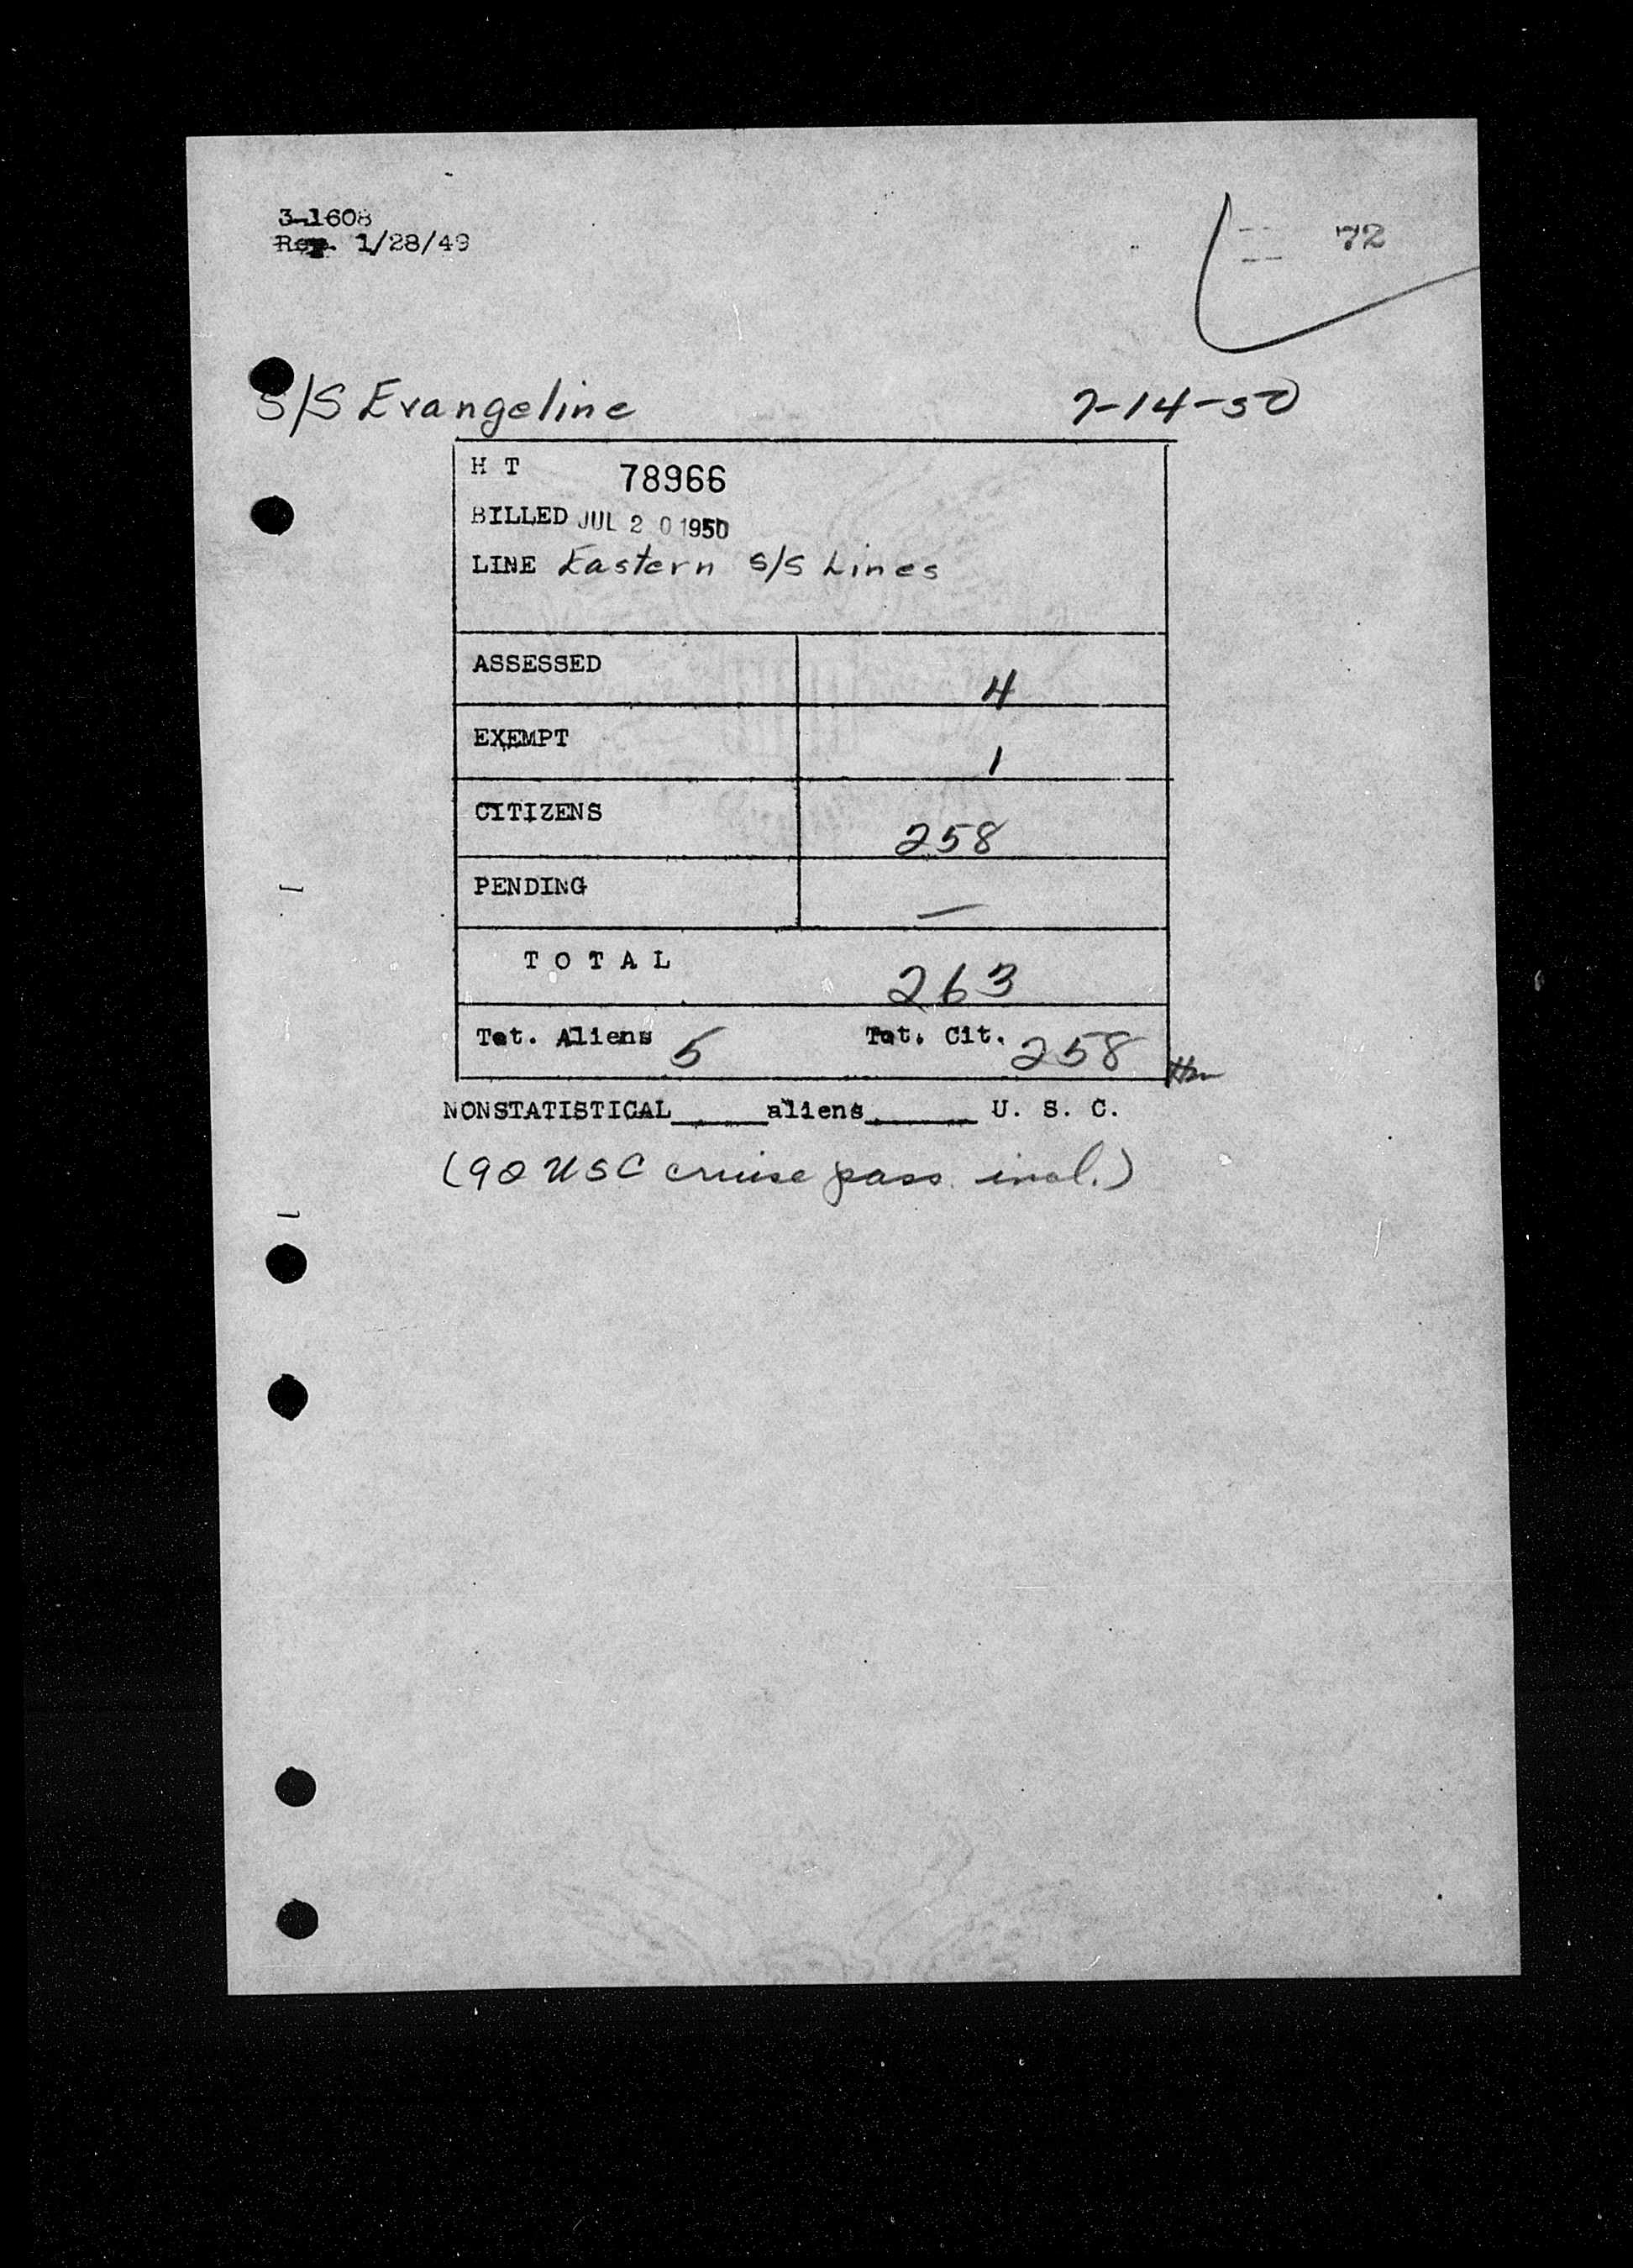 3-1608
Rep. 1/28/49
72
S/S Evangeline 7-14-50
H T 78966
BILLED JUL 20 1950
LINE Eastern S/S Lines
ASSESSED 4
EXEMPT 1
CITIZENS 258
PENDING —
T O T A L 263
Tot. Aliens 5 Tot. Cit. 258
NONSTATISTICAL_____aliens______ U. S. C.
(92 USC cruise pass. incl.)